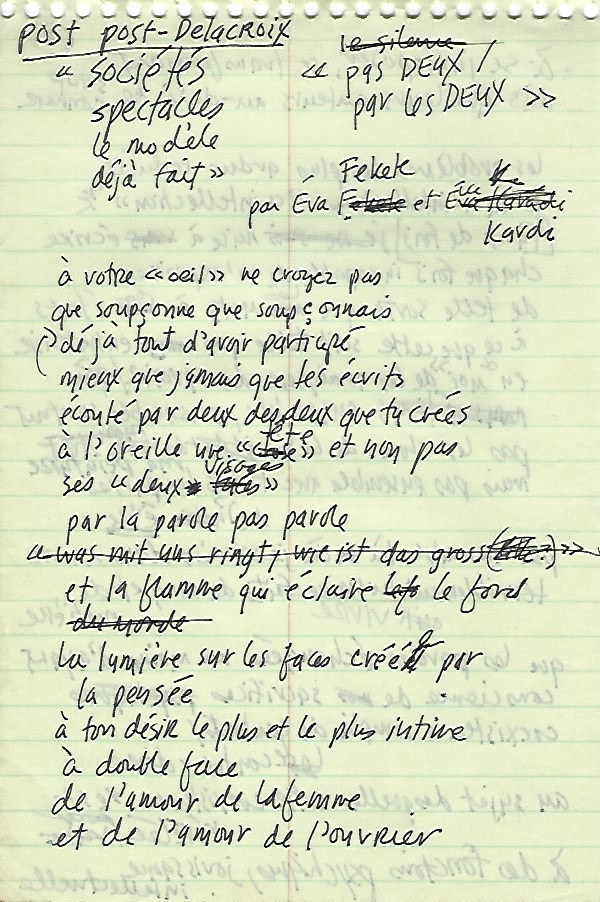 post post-Delacroix
le silence
« sociétés
spectacles
le modèle
déjà fait »
« pas DEUX /
par les DEUX »
Fekete
par Éva Fekete et Éva Karadi
Kardi
à votre « oeil » ne croyez pas
que soupçonne que soupçonnais
déjà tout d'avoir participé
mieux que jamais que tes écrits
écouté par deux des deux que tu créés
tête
à l'oreille une « chose » et non pas
visages
ses « deux faces »
par la parole pas parole
« was mit uns ringt, wie ist das gross »
et la flamme qui éclaire le fond
du monde
la lumière sur les faces créé par
la pensée
à ton désir le plus et le plus intime
à double face
de l'amour de la femme
et de l'amour de l'ouvrier